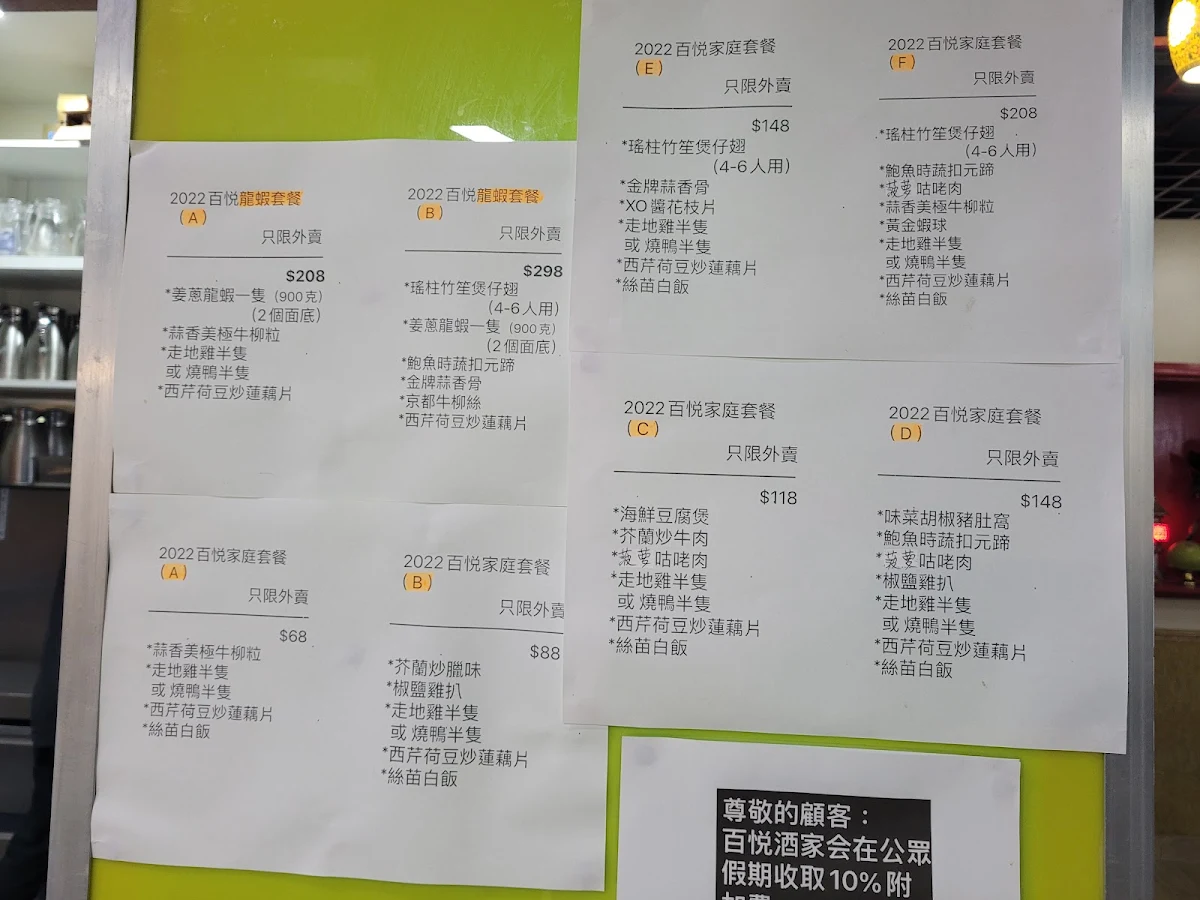 2022百悦龍蝦套餐
(A)
只限外賣
$208
*姜蔥龍蝦一隻 (900克)
(2個面底)
*蒜香美極牛柳粒
*走地雞半隻
或 燒鴨半隻
*西芹荷豆炒蓮藕片
2022百悦龍蝦套餐
(B)
只限外賣
$298
*瑤柱竹笙煲仔翅
(4-6人用)
*姜蔥龍蝦一隻 (900克)
(2個面底)
*鮑魚時蔬扣元蹄
*金牌蒜香骨
*京都牛柳絲
*西芹荷豆炒蓮藕片
2022百悦家庭套餐
(E)
只限外賣
$148
*瑤柱竹笙煲仔翅
(4-6人用)
*金牌蒜香骨
*XO醬花枝片
*走地雞半隻
或 燒鴨半隻
*西芹荷豆炒蓮藕片
*絲苗白飯
2022百悦家庭套餐
(F)
只限外賣
$208
*瑤柱竹笙煲仔翅
(4-6人用)
*鮑魚時蔬扣元蹄
*菠萝咕咾肉
*蒜香美極牛柳粒
*黃金蝦球
*走地雞半隻
或 燒鴨半隻
*西芹荷豆炒蓮藕片
*絲苗白飯
2022百悦家庭套餐
(A)
只限外賣
$68
*蒜香美極牛柳粒
*走地雞半隻
或 燒鴨半隻
*西芹荷豆炒蓮藕片
*絲苗白飯
2022百悦家庭套餐
(B)
只限外賣
$88
*芥蘭炒臘味
*椒鹽雞扒
*走地雞半隻
或 燒鴨半隻
*西芹荷豆炒蓮藕片
*絲苗白飯
2022百悦家庭套餐
(C)
只限外賣
$118
*海鮮豆腐煲
*芥蘭炒牛肉
*菠萝咕咾肉
*走地雞半隻
或 燒鴨半隻
*西芹荷豆炒蓮藕片
*絲苗白飯
2022百悦家庭套餐
(D)
只限外賣
$148
*味菜胡椒豬肚窩
*鮑魚時蔬扣元蹄
*菠萝咕咾肉
*椒鹽雞扒
*走地雞半隻
或 燒鴨半隻
*西芹荷豆炒蓮藕片
*絲苗白飯
尊敬的顧客：
百悦酒家会在公眾
假期收取10%附